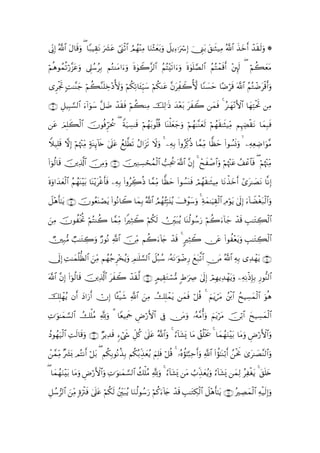 ۞ وَلَقَدْ أَخَذَ ٱللَّهُ مِيثَٰقَ بَنِىٓ إِسْرَٰٓءِيلَ وَبَعَثْنَا مِنْهُمُ ٱثْنَىْ عَشَرَ نَقِيبًا ۖ وَقَالَ ٱللَّهُ إِنِّى
مَعَكُمْ ۖ لَئِنْ أَقَمْتُمُ ٱلصَّلَوٰةَ وَءَاتَيْتُمُ ٱلزَّكَوٰةَ وَءَامَنتُم بِرُسُلِى وَعَزَّرْتُمُوهُمْ
وَأَقْرَضْتُمُ ٱللَّهَ قَرْضًا حَسَنًا لَّأُكَفِّرَنَّ عَنكُمْ سَيِّـَٔاتِكُمْ وَلَأُدْخِلَنَّكُمْ جَنَّٰتٍ تَجْرِى
مِن تَحْتِهَا ٱلْأَنْهَٰرُ ۚ فَمَن كَفَرَ بَعْدَ ذَٰلِكَ مِنكُمْ فَقَدْ ضَلَّ سَوَآءَ ٱلسَّبِيلِ ۝١٢
فَبِمَا نَقْضِهِم مِّيثَٰقَهُمْ لَعَنَّٰهُمْ وَجَعَلْنَا قُلُوبَهُمْ قَٰسِيَةً ۖ يُحَرِّفُونَ ٱلْكَلِمَ عَن
مَّوَاضِعِهِۦ ۙ وَنَسُوا۟ حَظًّا مِّمَّا ذُكِّرُوا۟ بِهِۦ ۚ وَلَا تَزَالُ تَطَّلِعُ عَلَىٰ خَآئِنَةٍ مِّنْهُمْ إِلَّا قَلِيلًا
مِّنْهُمْ ۖ فَٱعْفُ عَنْهُمْ وَٱصْفَحْ ۚ إِنَّ ٱللَّهَ يُحِبُّ ٱلْمُحْسِنِينَ ۝١٣ وَمِنَ ٱلَّذِينَ قَالُوٓا۟
إِنَّا نَصَٰرَىٰٓ أَخَذْنَا مِيثَٰقَهُمْ فَنَسُوا۟ حَظًّا مِّمَّا ذُكِّرُوا۟ بِهِۦ فَأَغْرَيْنَا بَيْنَهُمُ ٱلْعَدَاوَةَ
وَٱلْبَغْضَآءَ إِلَىٰ يَوْمِ ٱلْقِيَٰمَةِ ۚ وَسَوْفَ يُنَبِّئُهُمُ ٱللَّهُ بِمَا كَانُوا۟ يَصْنَعُونَ ۝١٤ يَٰٓأَهْلَ
ٱلْكِتَٰبِ قَدْ جَآءَكُمْ رَسُولُنَا يُبَيِّنُ لَكُمْ كَثِيرًا مِّمَّا كُنتُمْ تُخْفُونَ مِنَ
ٱلْكِتَٰبِ وَيَعْفُوا۟ عَن كَثِيرٍ ۚ قَدْ جَآءَكُم مِّنَ ٱللَّهِ نُورٌ وَكِتَٰبٌ مُّبِينٌ ۝١٥
يَهْدِى بِهِ ٱللَّهُ مَنِ ٱتَّبَعَ رِضْوَٰنَهُۥ سُبُلَ ٱلسَّلَٰمِ وَيُخْرِجُهُم مِّنَ ٱلظُّلُمَٰتِ إِلَى
ٱلنُّورِ بِإِذْنِهِۦ وَيَهْدِيهِمْ إِلَىٰ صِرَٰطٍ مُّسْتَقِيمٍ ۝١٦ لَّقَدْ كَفَرَ ٱلَّذِينَ قَالُوٓا۟ إِنَّ ٱللَّهَ
هُوَ ٱلْمَسِيحُ ٱبْنُ مَرْيَمَ ۚ قُلْ فَمَن يَمْلِكُ مِنَ ٱللَّهِ شَيْـًٔا إِنْ أَرَادَ أَن يُهْلِكَ
ٱلْمَسِيحَ ٱبْنَ مَرْيَمَ وَأُمَّهُۥ وَمَن فِى ٱلْأَرْضِ جَمِيعًا ۗ وَلِلَّهِ مُلْكُ ٱلسَّمَٰوَٰتِ
وَٱلْأَرْضِ وَمَا بَيْنَهُمَا ۚ يَخْلُقُ مَا يَشَآءُ ۚ وَٱللَّهُ عَلَىٰ كُلِّ شَىْءٍ قَدِيرٌ ۝١٧ وَقَالَتِ ٱلْيَهُودُ
وَٱلنَّصَٰرَىٰ نَحْنُ أَبْنَٰٓؤُا۟ ٱللَّهِ وَأَحِبَّٰٓؤُهُۥ ۚ قُلْ فَلِمَ يُعَذِّبُكُم بِذُنُوبِكُم ۖ بَلْ أَنتُم بَشَرٌ مِّمَّنْ
خَلَقَ ۚ يَغْفِرُ لِمَن يَشَآءُ وَيُعَذِّبُ مَن يَشَآءُ ۚ وَلِلَّهِ مُلْكُ ٱلسَّمَٰوَٰتِ وَٱلْأَرْضِ وَمَا بَيْنَهُمَا ۖ
وَإِلَيْهِ ٱلْمَصِيرُ ۝١٨ يَٰٓأَهْلَ ٱلْكِتَٰبِ قَدْ جَآءَكُمْ رَسُولُنَا يُبَيِّنُ لَكُمْ عَلَىٰ فَتْرَةٍ مِّنَ ٱلرُّسُلِ